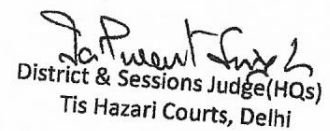 District & Sessions Judge(HQs)
Tis Hazari Courts, Delhi